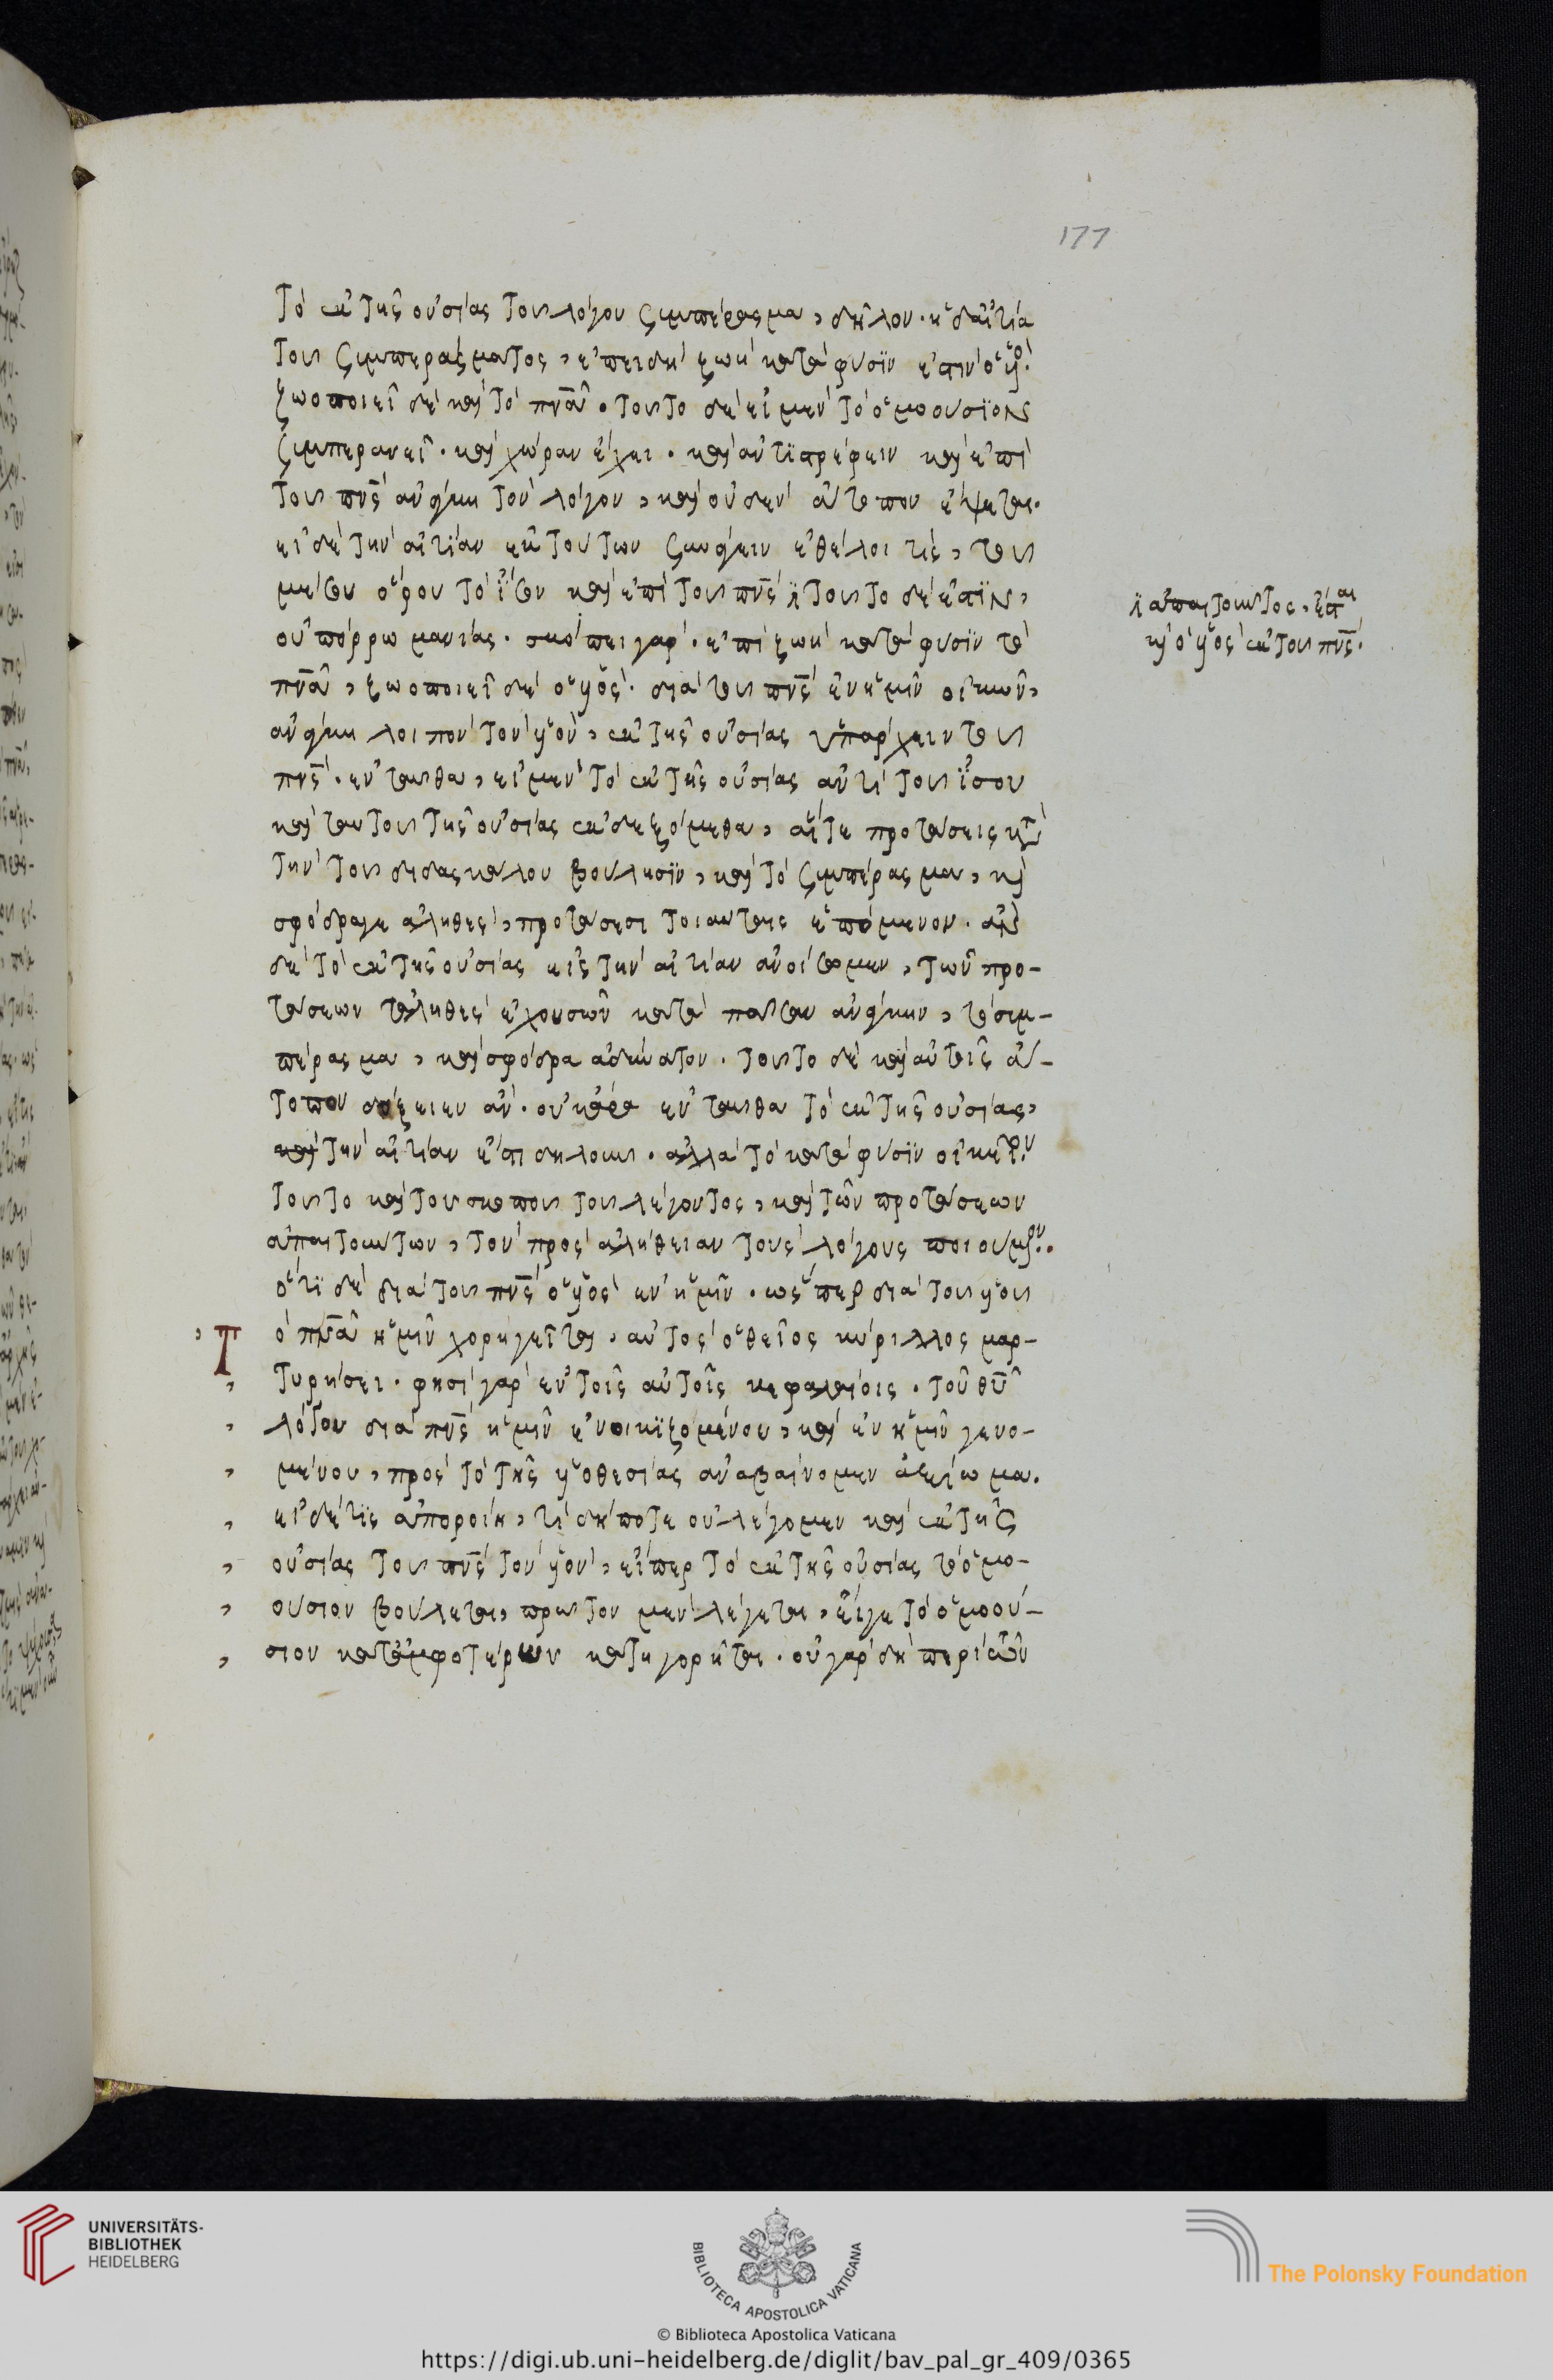 177
Τὸ ἐκ τῆς οὐσίας τοῦ λόγου συμπέρασμα, δῆλον. ἡ δ' αἰτία
τοῦ συμπεράσματος, ἐπειδὴ ζωὴ κατὰ φύσιν ἐστὶν ὁ υἱὸς.
ζωοποιεῖ δὲ καὶ τὸ πνᾶ. τοῦτο δὲ εἰ μὲν τὸ ὁμοούσιον
συμπερανεῖ. καὶ χώραν ἔχει. καὶ ἀντιστρέφειν καὶ ἐπὶ
τοῦ πνς ἀνάγκη τὸν λόγον, καὶ οὐδὲν ἄτοπον ἕψεται.
εἰ δὲ τὴν αἰτίαν ἐκ τούτων συνάγειν ἐθέλοι τίς, τοῦ
μέσου ὅρου τὸ ἴσον καὶ ἐπὶ τοῦ πνς τοῦτο δέ ἐστιν,
οὐ πόρρω μανίας. σκόπει γάρ. ἐπὶ ζωὴ κατὰ φύσιν τὸ
πνᾶ, ζωοποιεῖ δὲ ὁ υἱὸς. διὰ τοῦ πνς ἐν ἡμῖν οἰκῶν,
ἀνάγκη λοιπὸν τὸν υἱὸν, ἐκ τῆς οὐσίας ὑπάρχειν τοῦ
πνς. ἐνταῦθα, εἰ μὲν τὸ ἐκ τῆς οὐσίας ἀντὶ τοῦ ἴσου
καὶ ταυτοῦ τῆς οὐσίας ἐκδεξόμεθα, αἵ τε προτάσεις κτ
τὴν τοῦ διδασκάλου βούλησιν, καὶ τὸ συμπέρασμα, καὶ
σφόδρα γε ἀληθὲς, προτάσεσι τοιαύταις ἑπόμενον. ἂν
δὲ τὸ ἐκ τῆς οὐσίας εἰς τὴν αἰτίαν ἀνοίσομεν, τῶν προ-
τάσεων τἀληθὲς ἐχουσῶν κατὰ πᾶσαν ἀνάγκην, τὸ συμ-
πέρασμα, καὶ σφόδρα ἀδύνατον. τοῦτο δὲ καὶ αὐτοῖς ἄ-
τοπον δόξειεν ἄν. οὐκ ἄρα ἐνταῦθα τὸ ἐκ τῆς οὐσίας,
καὶ τὴν αἰτίαν ἐστὶ δηλοῦν. ἀλλὰ τὸ κατὰ φύσιν οἰκεῖον.
τοῦτο καὶ τοῦ σκοποῦ τοῦ λέγοντος, καὶ τῶν προτάσεων
ἀπαιτουντων, τὸν πρὸς ἀλήθειαν τοὺς λόγους ποιούμενον.
ὅτι δὲ διὰ τοῦ πνς ὁ υἱὸς ἐν ἡμῖν. ὥσπερ διὰ τοῦ υἱοῦ
Τ ὸ πνᾶ ἡμῖν χορηγεῖται, αὐτὸς ὁ θεῖος κύριλλος μαρ-
τυρήσει. φησὶ γὰρ ἐν τοῖς αὐτοῖς κεφαλαίοις. τοῦ θῦ
λόγου διὰ πνς ἡμῖν ἐνοικιζομένου, καὶ ἐν ἡμῖν γενο-
μένου, πρὸς τὸ τῆς υἱοθεσίας ἀναβαίνομεν ἀξίωμα.
εἰ δέ τις ἀποροίη, τί δήποτε οὐ λέγομεν καὶ ἐκ τῆς
οὐσίας τοῦ πνς τὸν υἱὸν, εἴπερ τὸ ἐκ τῆς οὐσίας τὸ ὁμο-
ούσιον βούλεται, πρῶτον μὲν λέγεται, εἴγε τὸ ὁμοού-
σιον κατ' ἀμφοτέρων κατηγορεῖται. οὐ γὰρ δὴ περὶ αὐτῶν
ἀπαιτοῦντος, ἔσται
καὶ ὁ υἱὸς ἐκ τοῦ πνς.
UNIVERSITÄTS-
BIBLIOTHEK
HEIDELBERG
BIBLIOTECA APOSTOLICA VATICANA
The Polonsky Foundation
© Biblioteca Apostolica Vaticana
https://digi.ub.uni-heidelberg.de/diglit/bav_pal_gr_409/0365